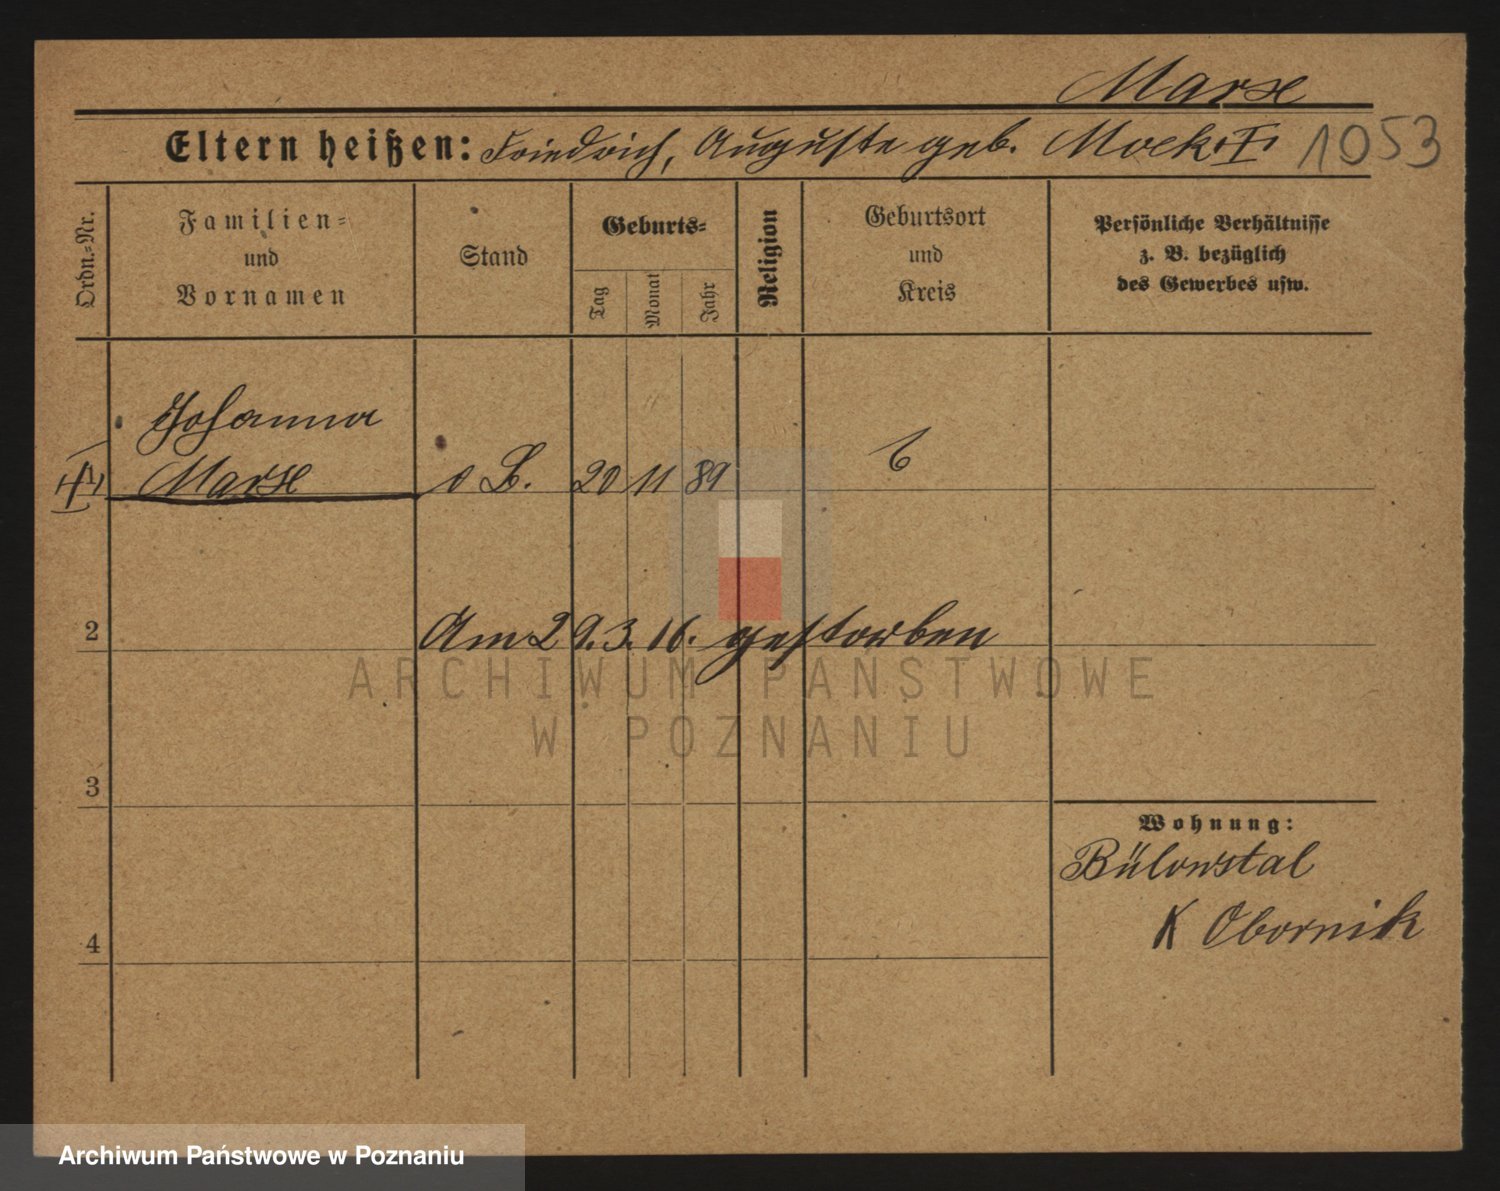 Marse
Eltern heißen: Friedrich, Auguste geb. Mock I. 1053
Ordn.-Nr.
Familien-
und
Vornamen
Stand
Geburts-
Tag
Monat
Jahr
Religion
Geburtsort
und
Kreis
Persönliche Verhältnisse
z. B. bezüglich
des Gewerbes usw.
Johanna
Marse
o B. 20 11 89
2
Am 29.3.16. gestorben
ARCHIWUM PAŃSTWOWE
W POZNANIU
3
Wohnung:
Bülowstal
K Obornik
4
Archiwum Państwowe w Poznaniu